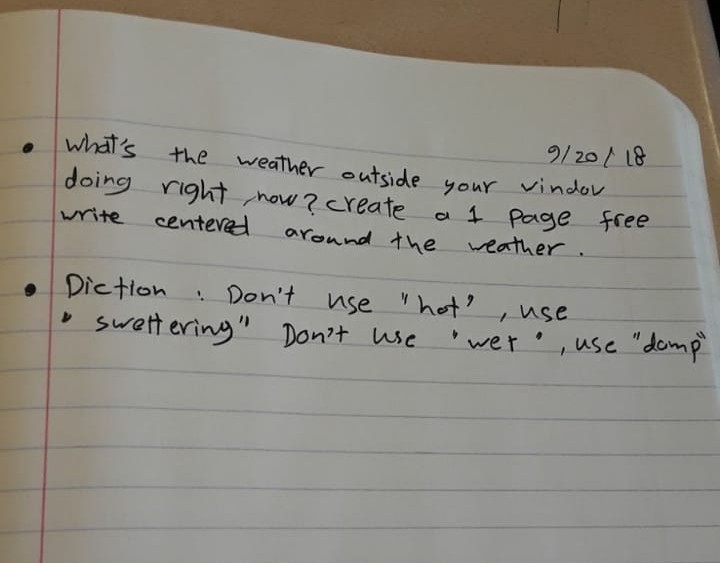 9/20/18
• What's the weather outside your vindov
doing right now? create a 1 page free
write centered around the weather.
• Diction : Don't use "hot", use
" sweltering" Don't use "wet", use "damp"